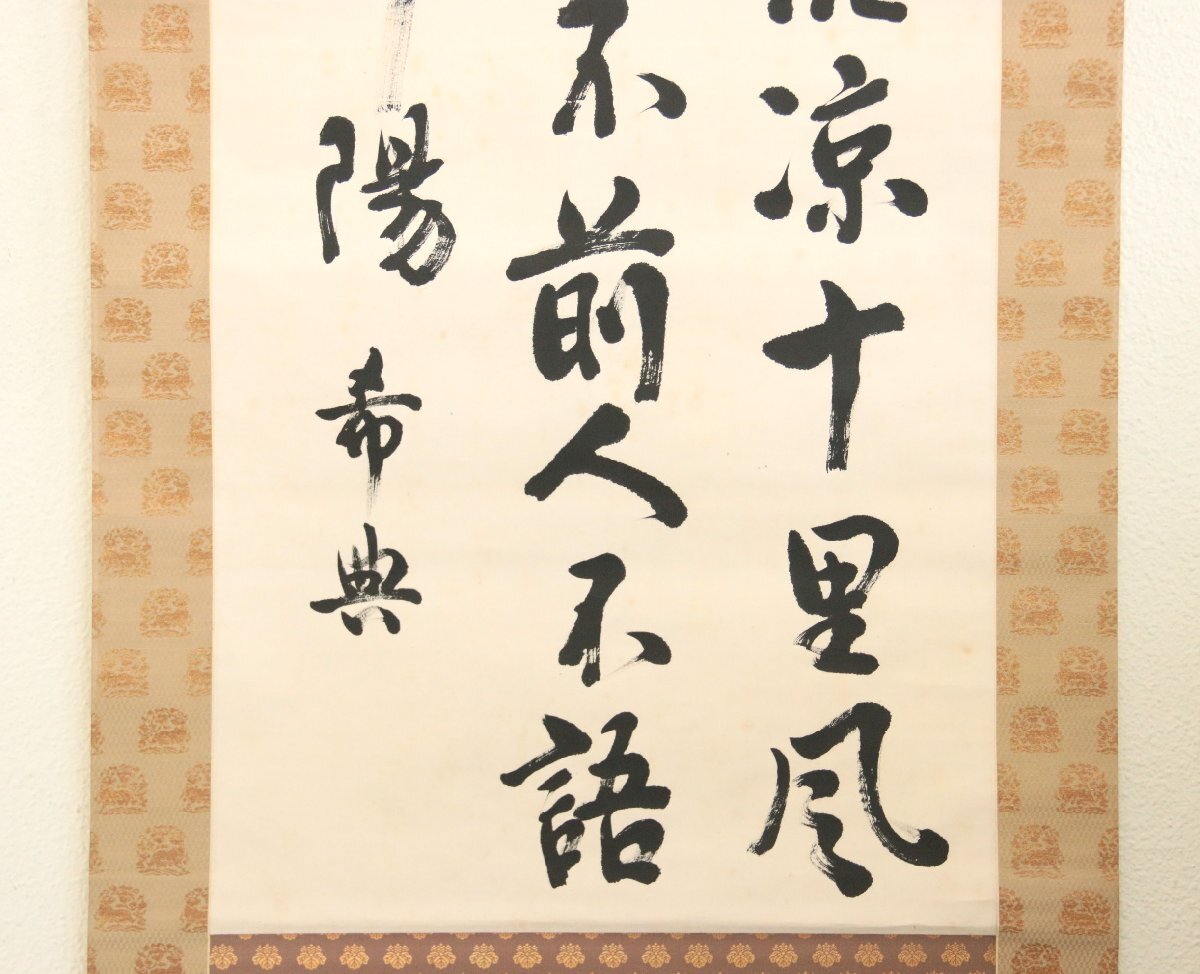 凉十里風
不前人不語
陽 希典